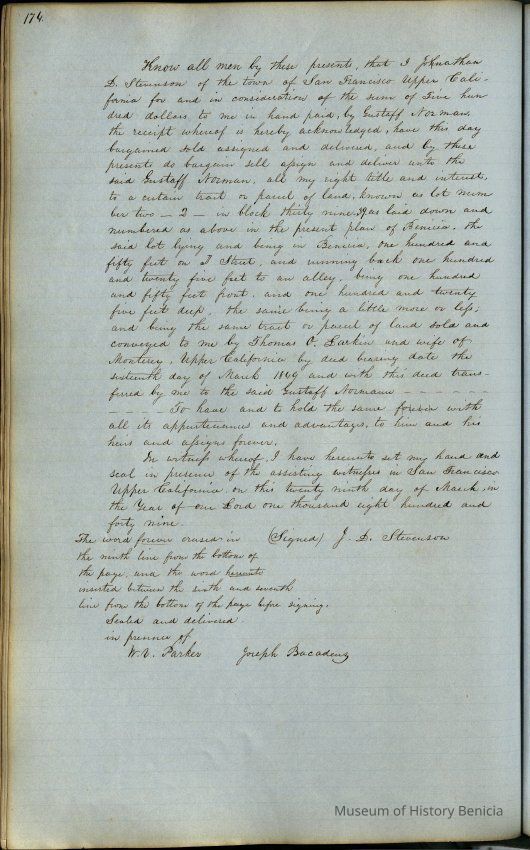 174.
Know all men by these presents, that I Johnathan
D. Stevenson of the town of San Francisco Upper Cali-
fornia for and in consideration of the sum of Five hun
dred dollars, to me in hand paid, by Gustaff Norman,
the receipt whereof is hereby acknowledged, have this day
bargained sold assigned and delivered, and by these
presents do bargain sell assign and deliver unto the
said Gustaff Norman, all my right title and interest,
to a certain tract or parcel of land, known as lot num
ber two — 2 — in block thirty nine, as laid down and
numbered as above in the present plan of Benicia, the
said lot lying and being in Benicia, one hundred and
fifty feet on I Street, and running back one hundred
and twenty five feet to an alley, being one hundred
and fifty feet front, and one hundred and twenty
five feet deep, the same being a little more or less;
and being the same tract or parcel of land sold and
conveyed to me by Thomas O. Larkin and wife of
Monterey, Upper California by deed bearing date the
sixteenth day of March 1849 and with this deed trans-
ferred by me to the said Gustaff Normann - - - - - -
- - - - - To have and to hold the same forever with
all its appurtenances and advantages, to him and his
heirs and assigns forever.
In witness whereof, I have hereunto set my hand and
seal in presence of the assisting witnesses in San Francisco
Upper California on this twenty ninth day of March, in
the Year of our Lord one thousand eight hundred and
forty nine.
The word forever erased in (Signed) J. D. Stevenson
the ninth line from the bottom of
the page, and the word hereunto
inserted between the sixth and seventh
line from the bottom of the page before signing.
Sealed and delivered
in presence of
Parker Joseph
Museum of History Benicia